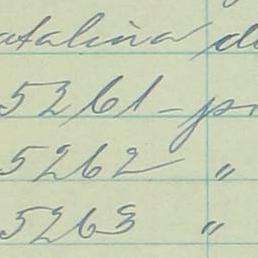 atalina d
5261 - p
5262 "
5263 "